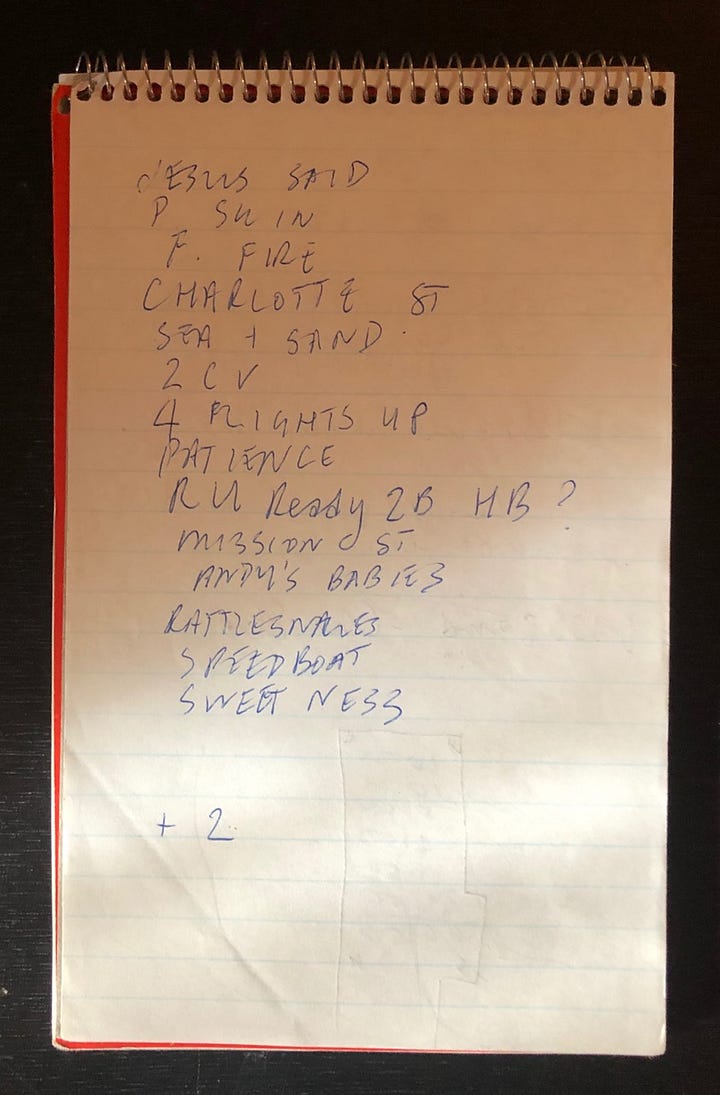 JESUS SAID
P SKIN
F. FIRE
CHARLOTTE ST
SEA + SAND
2 CV
4 FLIGHTS UP
PATIENCE
R U Ready 2B HB ?
MISSION ST
ANDY'S BABIES
RATTLESNAKES
SPEEDBOAT
SWEET NESS
+ 2